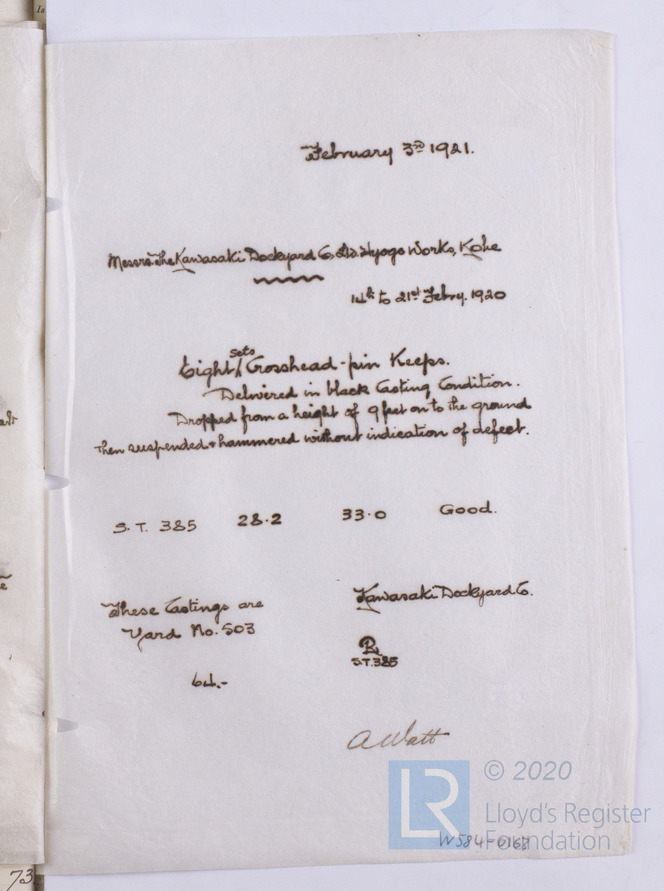 February 3rd 1921.
Messrs The Kawasaki Dockyard Co. Ltd. Hyogo Works, Kobe
14th to 21st Febry. 1920
Eight sets Crosshead-pin Keeps.
Delivered in black Casting Condition.
Dropped from a height of 9 feet on to the ground
then suspended & hammered without indication of defect.
S.T. 385 28.2 33.0 Good.
These Castings are
Yard No. 503
Kawasaki Dockyard Co.
LR
S.T.385
A Watt
LR
© 2020
Lloyd's Register
Foundation
W584-0167
73